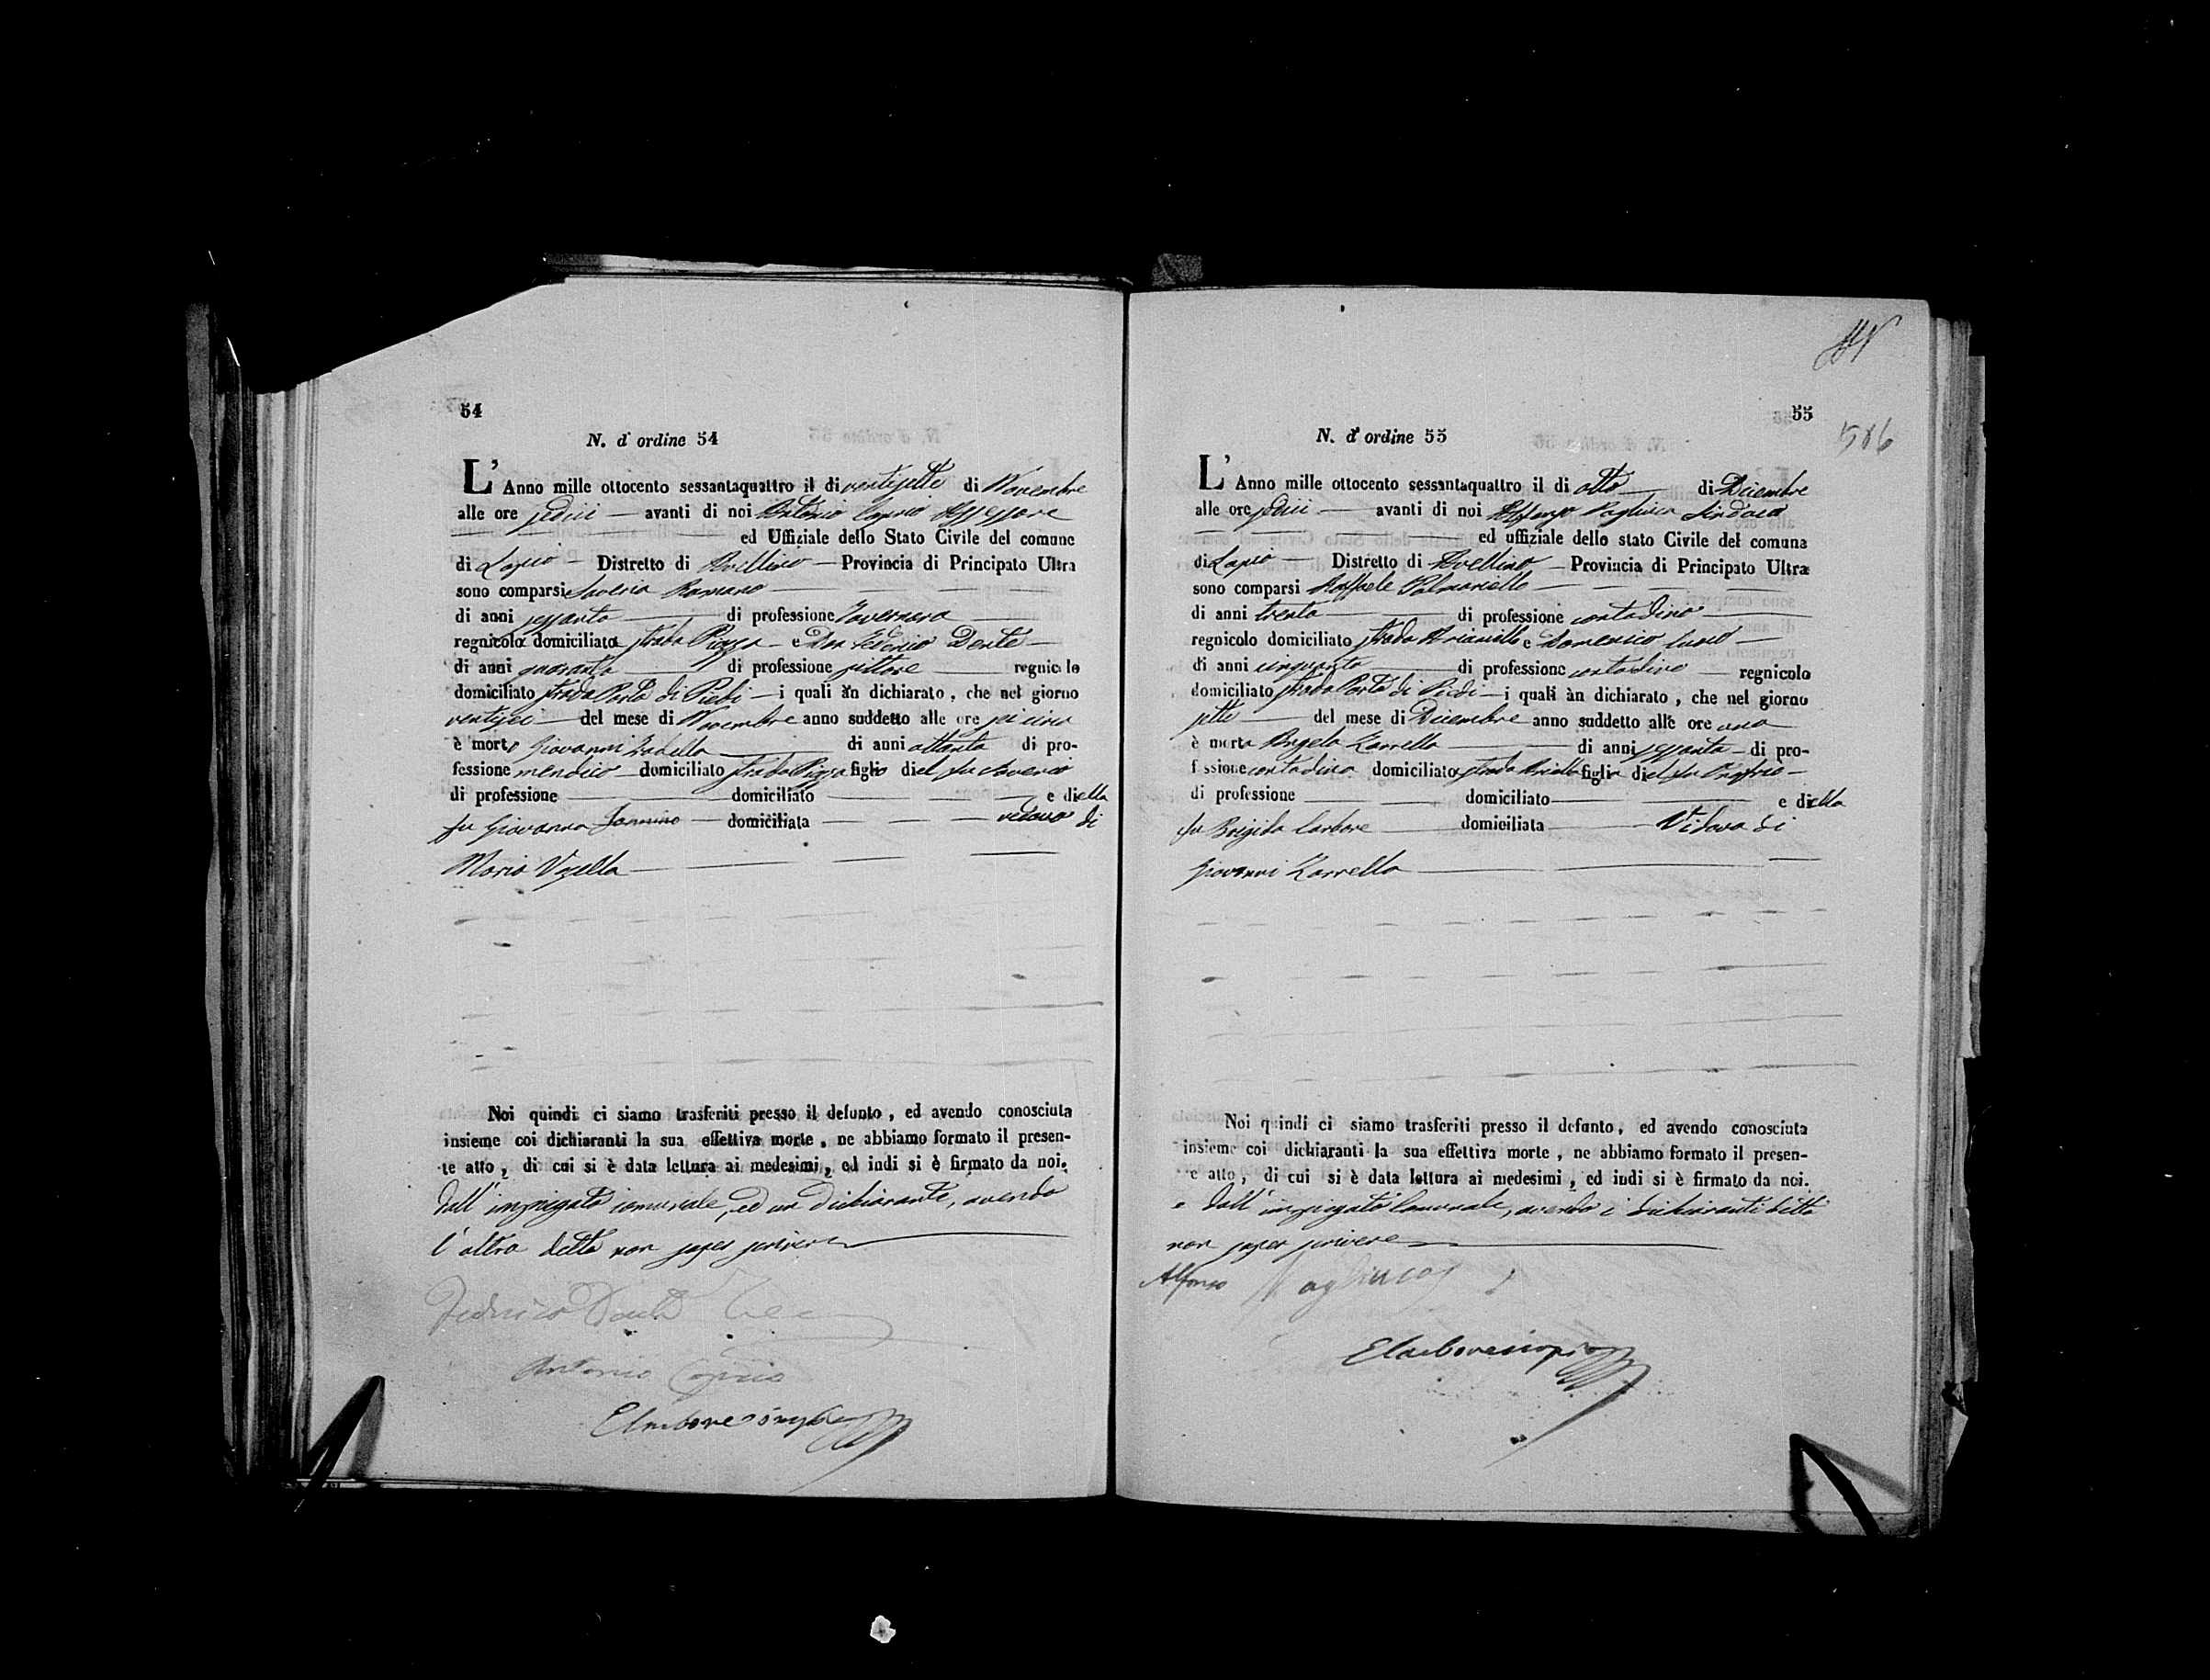 54
N. d'ordine 54
L'Anno mille ottocento sessantaquattro il di ventisette di Novembre
alle ore sedici avanti di noi Antonio Caprio Assessore
ed Uffiziale dello Stato Civile del comune
di Lapio Distretto di Avellino Provincia di Principato Ultra
sono comparsi Saveria Romano
di anni sessanta di professione Tavernara
regnicola domiciliata strada Piazza e Don Federico Dente
di anni quaranta di professione pittore regnicolo
domiciliato strada Porta di Piedi i quali àn dichiarato, che nel giorno
ventisei del mese di Novembre anno suddetto alle ore
è morto Giovanni di anni ottanta di pro-
fessione mendico domiciliato strada Piazza figlio di el fu Saverio
di professione domiciliato e di ella
fu Giovanna Iannino domiciliata vedovo di
Maria
Noi quindi ci siamo trasferiti presso il defunto, ed avendo conosciuta
insieme coi dichiaranti la sua effettiva morte, ne abbiamo formato il presen-
te atto, di cui si è data lettura ai medesimi, ed indi si è firmato da noi,
dall'impiegato comunale, ed un dichiarante, avendo
l'altra detto non saper scrivere
Federico Dente
Antonio Caprio
55
586
N. d'ordine 55
L'Anno mille ottocento sessantaquattro il di otto di Dicembre
alle ore sedici avanti di noi Alfonso Pagliuca Sindaco
ed uffiziale dello stato Civile del comuna
di Lapio Distretto di Avellino Provincia di Principato Ultra
sono comparsi Raffaele Palmariello
di anni trenta di professione contadino
regnicolo domiciliato strada Arianello e Domenico
di anni cinquanta di professione contadino regnicolo
domiciliato strada Porta di Piedi i quali àn dichiarato, che nel giorno
sette del mese di Dicembre anno suddetto alle ore una
è morta Angela Zarrella di anni sessanta di pro-
fessione contadina domiciliata strada figlia di el fu Onofrio
di professione domiciliato e di ella
fu Brigida Carbone domiciliata Vidova di
Giovanni Zarrella
Noi quindi ci siamo trasferiti presso il defunto, ed avendo conosciuta
insieme coi dichiaranti la sua effettiva morte, ne abbiamo formato il presen-
te atto, di cui si è data lettura ai medesimi, ed indi si è firmato da noi.
e dall'impiegato Comunale, avendo i dichiaranti detto
non saper scrivere
Alfonso Pagliuca